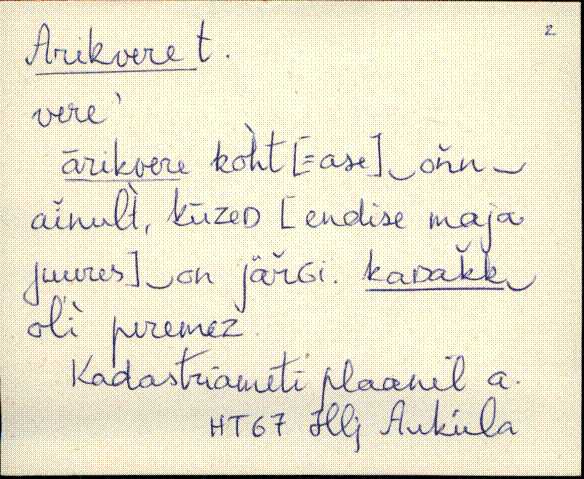 2
Arikvere t.
vere`
ārikvere kòht [=ase] ‿ oňn ‿
aǐnult̀, kūzeᴅ [endise maja
juures] ‿ on jäřɢi. kaᴅaǩk ‿
olì peremez.
Kadastriameti plaanil a.
HT67 Hlj